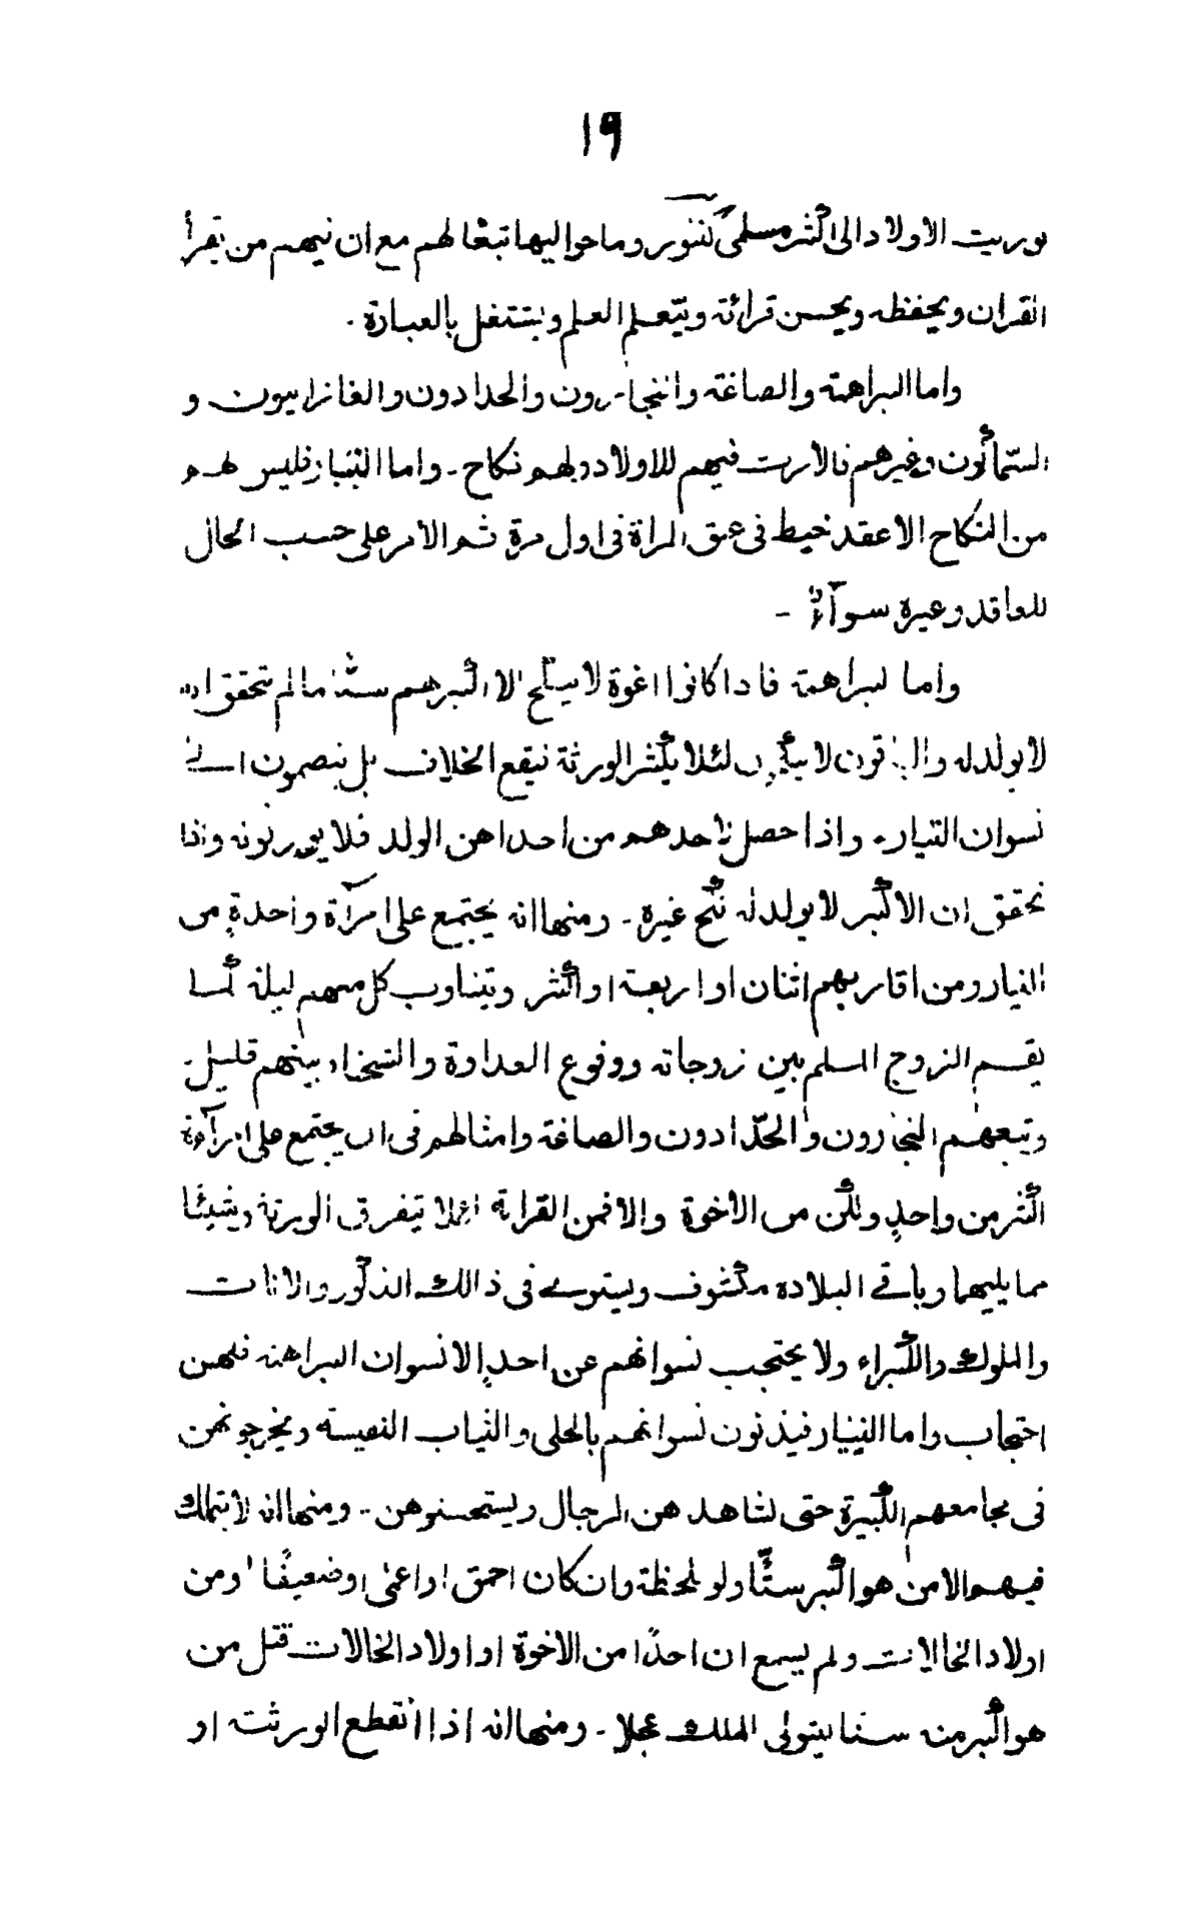 ١٩
توريت الاولاد الى اكثر مسلمي كننور وما حواليها تبعا لهم مع ان فيهم من يقرأ
القران ويحفظه ويحسن قرائته ويتعلم العلم ويشتغل بالعبادة .
واما البراهمة والصاغة والنجارون والحدادون والغازاييون و
السماكون وغيرهم فالارث فيهم للاولاد ولهم نكاح - واما النيار فليس لهم
من النكاح الا عقد خيط في عنق المراة في اول مرة ثم الامر على حسب الحال
للعاقد وغيره سواء -
واما البراهمة فاذا كانوا اخوة لا ينكح الا اكبرهم سنًا مالم تحقق انه
لا يولد له والباقون لا ينكحون لئلا يكثر الورثة فيقع الخلاف بل ينضمون الى
نسوان النيار - واذا حصل لاحدهم من احداهن الولد فلا يورثونه واذا
تحقق ان الاكبر لا يولد له نكح غيره - ومنها انه يجتمع على امرأة واحدةٍ من
النيار ومن اقاربهم اثنان او اربعة او اكثر ويتناوب كل منهم ليلة كما
يقسم الزوج المسلم بين زوجاته ووقوع العداوة والشحناء بينهم قليل -
وتبعهم النجارون والحدّادون والصاغة وامثالهم في ان يجتمع على امرأة
اكثر من واحدٍ ولكن من الاخوة والا فمن القرابة لئلا يتفرق الورثة وشيئًا
مما يليهما وباقي البلاده مكشوف ويستوي في ذالك الذكور والاناث
والملوك والكبراء ولا يحتجب نسوانهم عن احدٍ الا نسوان البراهمة فلهن
احتجاب واما النيار فيذنون نسوانهم بالحلى والثياب النفيسة ويخرجونهن
في مجامعهم الكبيرة حتى تشاهدهن الرجال ويستحسنوهن - ومنها انه لا يتملك
فيهم الا من هو اكبر سنًّا ولو لحظة وان كان احمق او اعمى او ضعيفًا او من
اولاد الخالات ولم يسمع ان احدًا من الاخوة او اولاد الخالات قتل من
هو اكبر منه سنا ليتولى الملك عجلا - ومنها انه اذا انقطع الورثة او